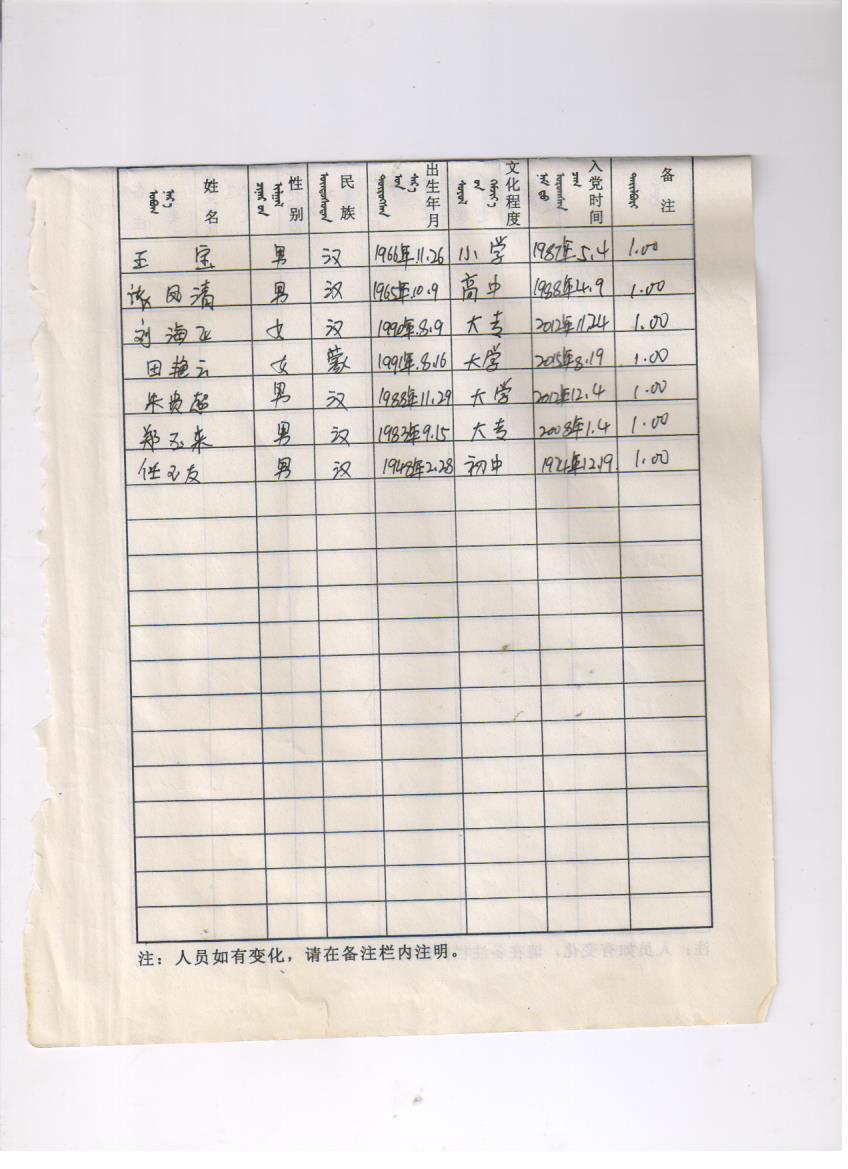 姓名 性别 民族 出生年月 文化程度 入党时间 备注
王 宝 男 汉 1966年.11.26 小学 1987年.5.4 1.00
凤清 男 汉 1965年.10.9 高中 1988年4.9 1.00
刘海 女 汉 1990年.8.9 大专 2012年11.24 1.00
田艳云 女 蒙 1991年.8.16 大学 2015年8.19 1.00
朱 超 男 汉 1988年11.29 大学 2012年12.4 1.00
郑玉来 男 汉 1983年9.15 大专 2008年1.4 1.00
任玉友 男 汉 1948年2.28 初中 12.19. 1.00
注：人员如有变化，请在备注栏内注明。